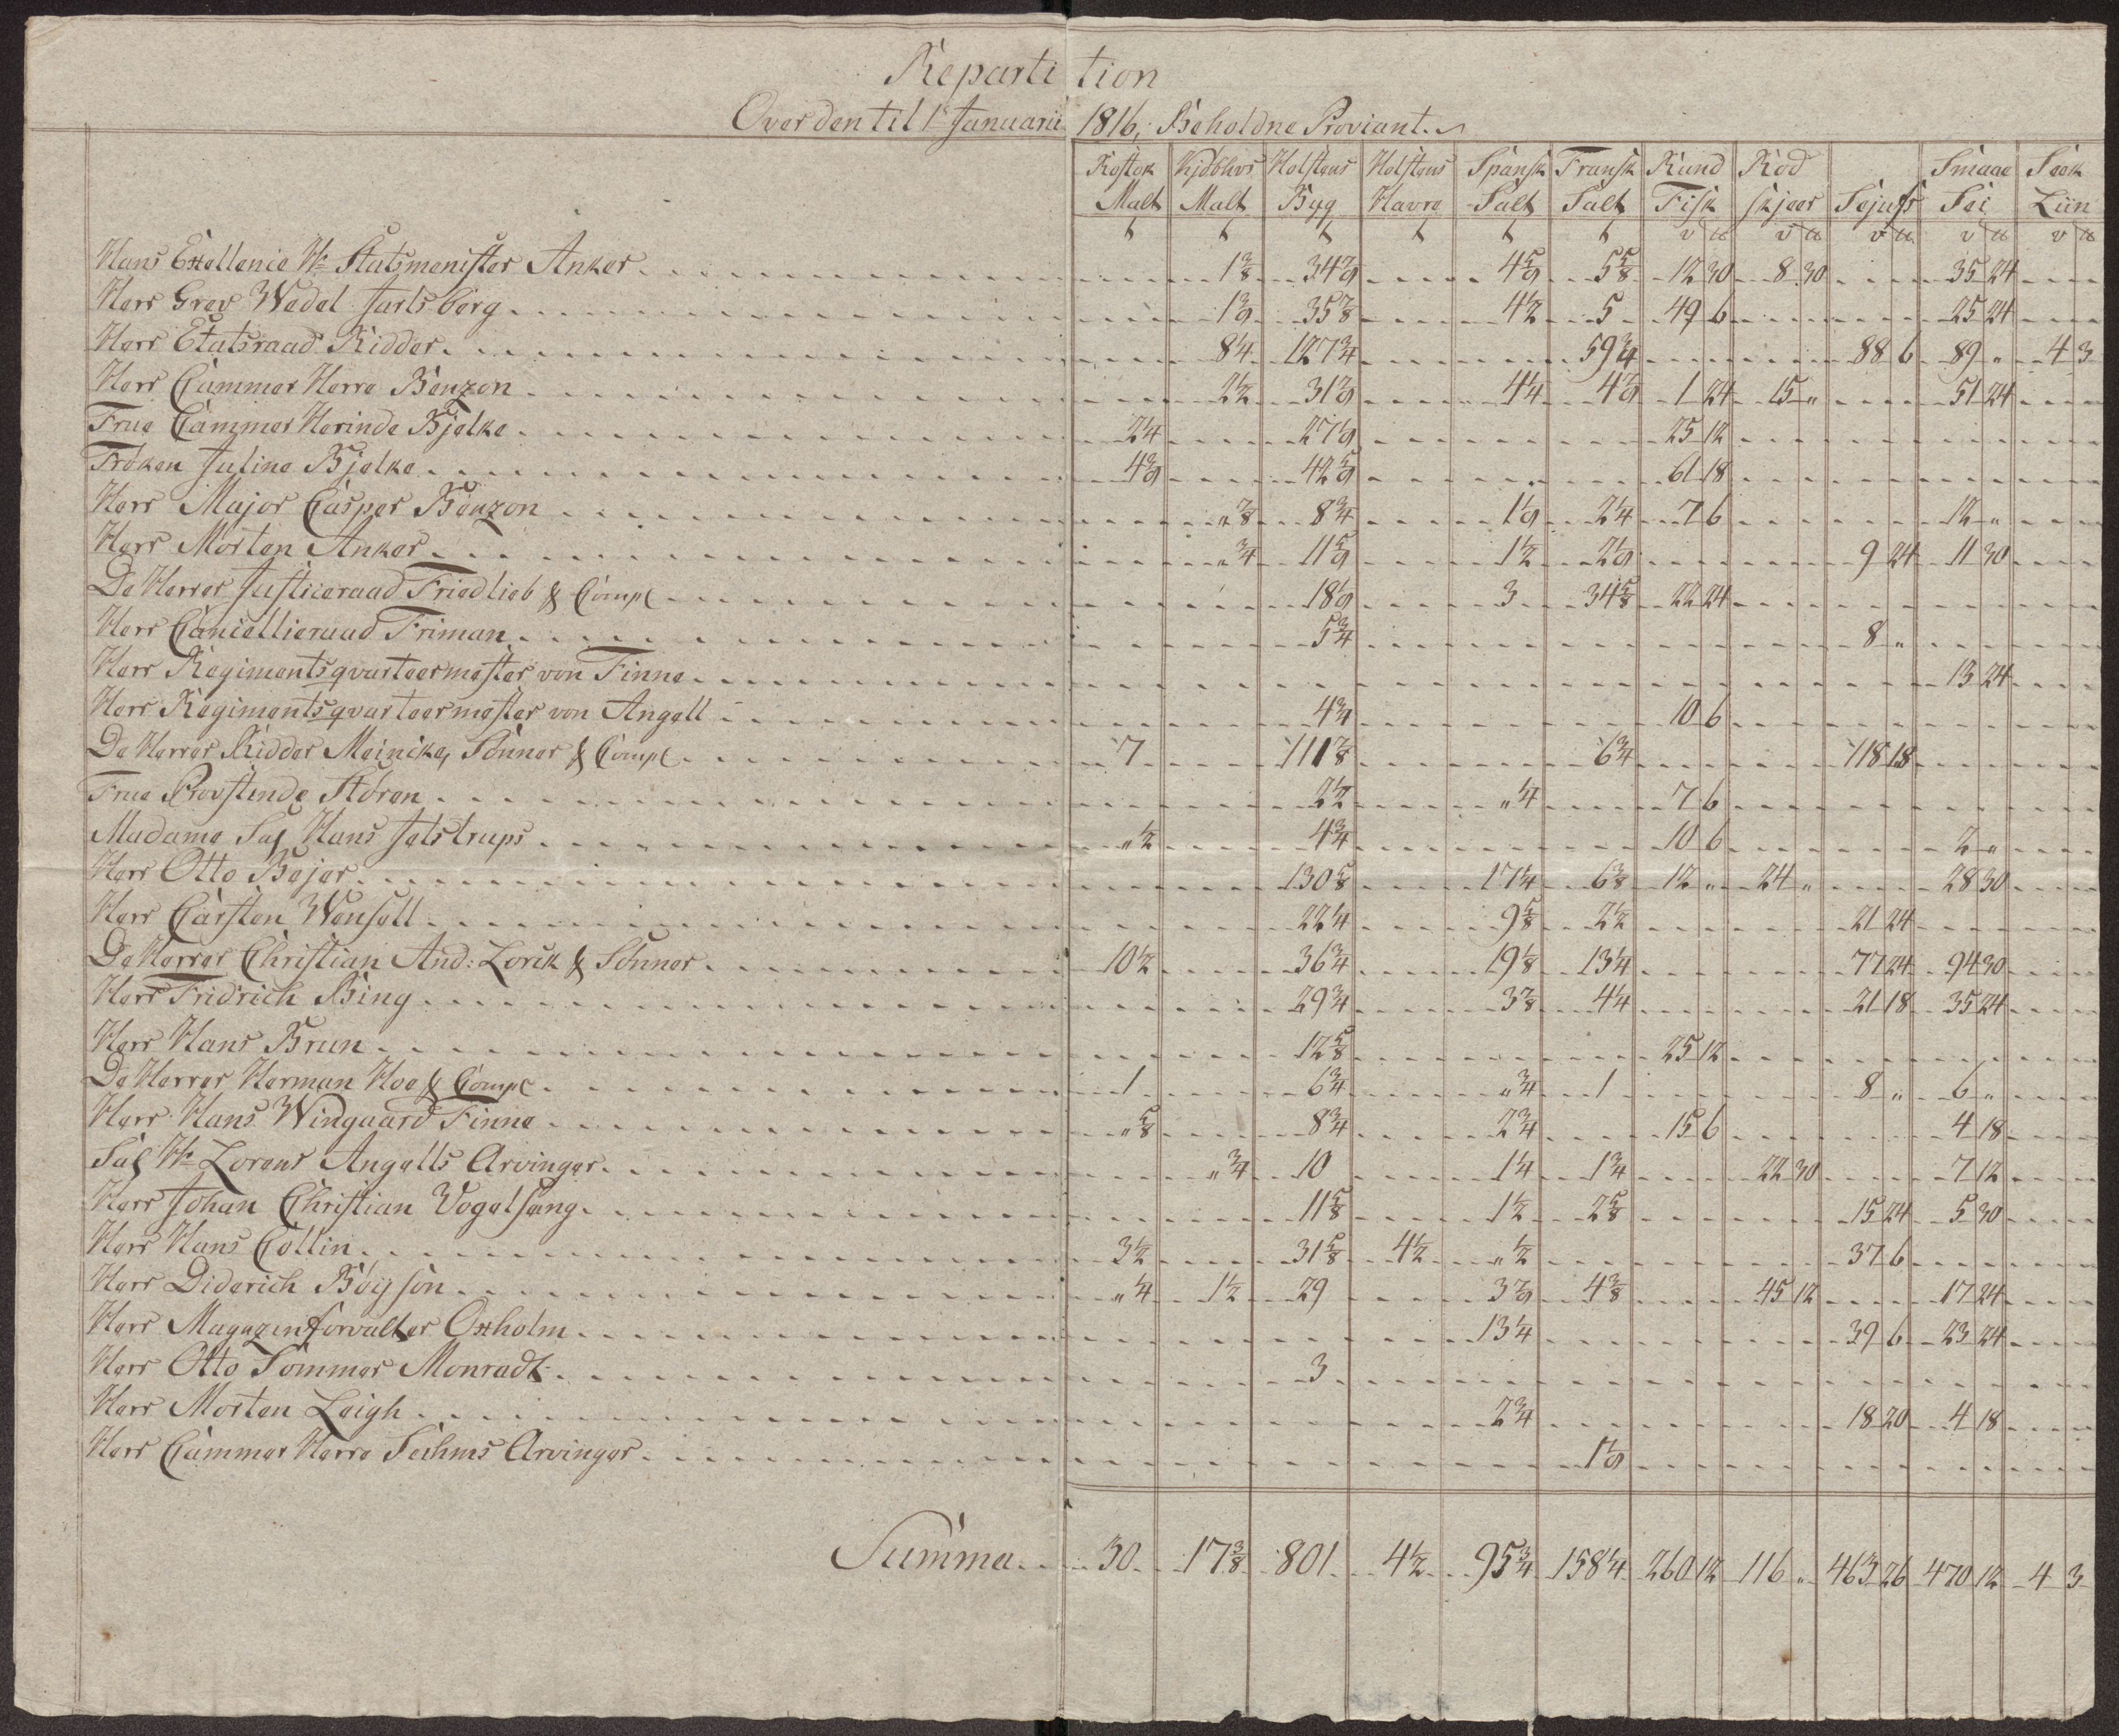 Repartition
Over den til 1e Januarii 1816, Beholdne Proviant.
Rostok Malt | Kjöbhvs Malt | Holstens Byg | Holstens Havre | Spansk Salt | Fransk Salt | Rund Fisk | Rod skjær | Sejufs | Smaae Sei | Seek Liin
Hans Exellence Hr Statsmenister Anker 1 3/8 34 7/9 4 5/9 5 5/8 12 30 8 30 35 24
Herr Grev Wedel Jarlsberg 1 3/9 35 7/8 4 1/2 5 49 6 25 24
Herr Etatsraad Ridder 8 1/4 127 3/4 59 3/4 88 6 89 „ 4 3
Herr Cammer Herre Benzon 2 1/2 31 7/9 4 1/4 4 7/9 1 24 15 „ 51 24
Frue Cammer Herinde Bjelke 2 1/4 27 1/9 25 12
Fröken Juline Bjelke 4 3/9 42 5/9 61 18
Herr Major Casper Benzon „ 7/8 8 3/4 1 1/9 2 1/4 7 6 12 „
Herr Morten Anker „ 3/4 11 5/9 1 1/2 2 1/9 9 24 11 30
De Herrer Justiceraad Friedlieb & Comp 18 1/9 3 34 5/8 22 24
Herr Cancellieraad Friman 5 3/4 8 „
Herr Regimentsqvarteermester von Finne 13 24
Herr Regimentsqvarteermester von Angell 4 3/4 10 6
De Herrer Ridder Meincke, Sönner & Comp 7 111 7/8 6 3/4 118 18
Frue Provstinde Stören 2 1/2 „ 1/4 7 6
Madame Sal Hans Jelstrups „ 1/2 4 3/4 10 6 2 „
Herr Otto Bejer 130 5/8 17 1/4 6 3/8 12 „ 24 „ 28 30
Herr Carsten Wensell 22 1/4 9 5/8 2 1/2 21 24
De Herrer Christian And: Lorck & Sönner 10 1/2 36 3/4 19 1/8 13 1/4 77 24 94 30
Herr Fridrich Bing 29 3/4 3 7/8 4 1/4 21 18 35 24
Herr Hans Brun 12 5/8 25 12
De Herrer Herman Hoe & Comp 1 6 3/4 „ 3/4 1 8 „ 6 „
Herr Hans Wingaard Finne „ 5/8 8 3/4 2 3/4 15 6 4 18
Sal Hr Lorens Angells Arvinger „ 3/4 10 1 1/4 1 3/4 22 30 7 12
Herr Johan Christian Vogelsang 11 5/8 1 1/2 2 5/8 15 24 5 30
Herr Hans Collin 3 1/2 31 5/8 4 1/2 „ 1/2 37 6
Herr Diderich Böyson „ 1/4 1 1/2 29 3 7/9 4 3/8 45 12 17 24
Herr Magazinforvalter Oxholm 13 1/4 39 6 23 24
Herr Otto Sommer Monradt 3
Herr Morten Leigh 2 3/4 18 20 4 18
Herr Cammer Herre Suhms Arvinger 1 1/9
Summa 30 17 3/8 801 4 1/2 95 3/4 158 1/4 260 12 116 „ 463 26 470 12 4 3